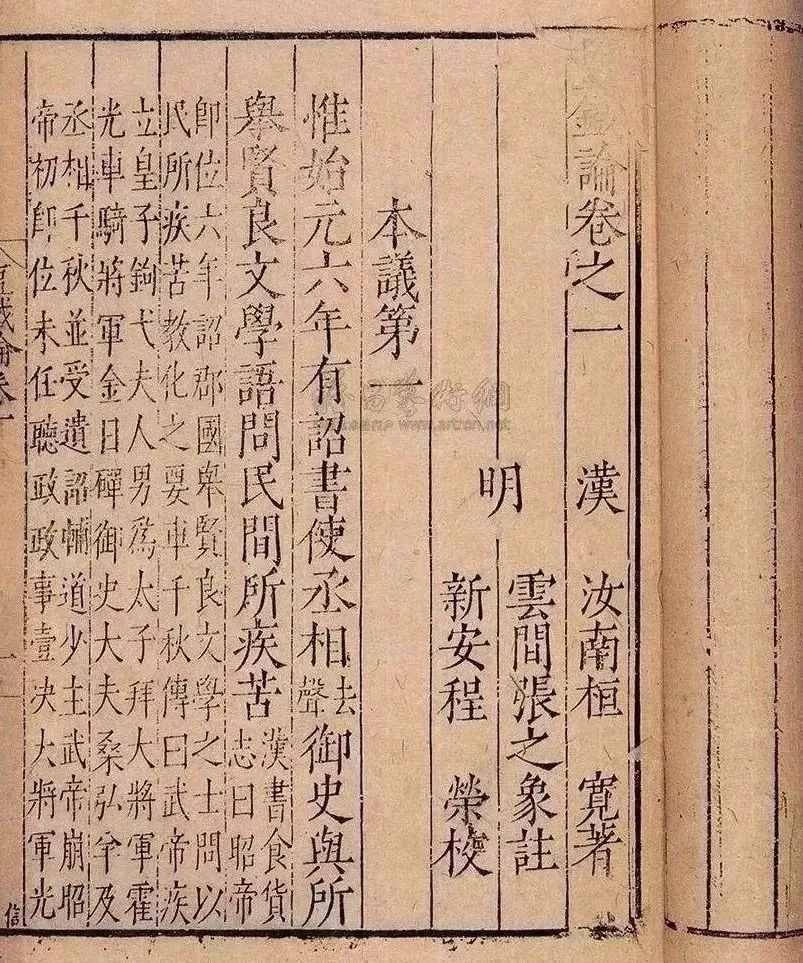 論卷之一
漢 汝南桓 寬著
明 雲間張之象註
新安程 榮校
本議第一
惟始元六年有詔書使丞相去聲御史與所
舉賢良文學語問民間所疾苦漢書食貨志曰昭帝
卽位六年詔郡國舉賢良文學之士問以
民所疾苦教化之要車千秋傳曰武帝疾
立皇子鉤弋夫人男爲太子拜大將軍霍
光車騎將軍金日磾御史大夫桑弘羊及
丞相千秋並受遺詔輔道少主武帝崩昭
帝初卽位未任聽政政事壹决大將軍光
論卷一
信
藝術網
www.artron.net